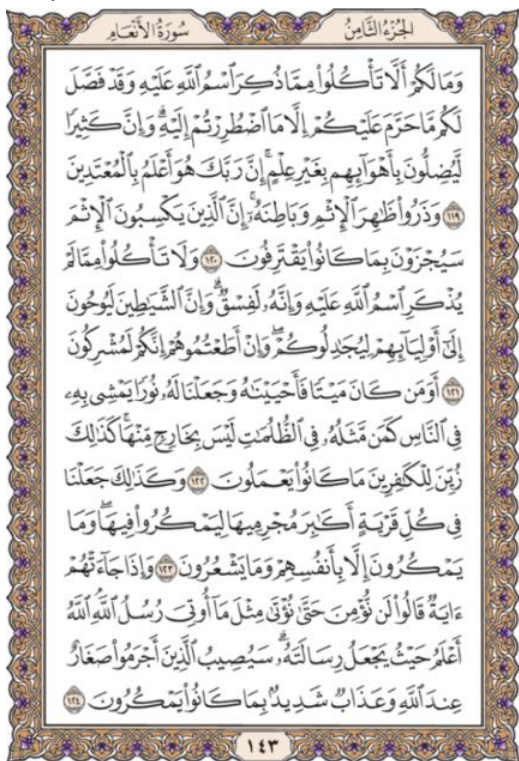 سُورَةُ الأَنْعَامِ
الجُزْءُ الثَّامِنُ
وَمَا لَكُمْ أَلَّا تَأْكُلُوا۟ مِمَّا ذُكِرَ ٱسْمُ ٱللَّهِ عَلَيْهِ وَقَدْ فَصَّلَ
لَكُم مَّا حَرَّمَ عَلَيْكُمْ إِلَّا مَا ٱضْطُرِرْتُمْ إِلَيْهِ ۗ وَإِنَّ كَثِيرًا
لَّيُضِلُّونَ بِأَهْوَآئِهِم بِغَيْرِ عِلْمٍ ۗ إِنَّ رَبَّكَ هُوَ أَعْلَمُ بِٱلْمُعْتَدِينَ
١١٩ وَذَرُوا۟ ظَـٰهِرَ ٱلْإِثْمِ وَبَاطِنَهُۥٓ ۚ إِنَّ ٱلَّذِينَ يَكْسِبُونَ ٱلْإِثْمَ
سَيُجْزَوْنَ بِمَا كَانُوا۟ يَقْتَرِفُونَ ١٢٠ وَلَا تَأْكُلُوا۟ مِمَّا لَمْ
يُذْكَرِ ٱسْمُ ٱللَّهِ عَلَيْهِ وَإِنَّهُۥ لَفِسْقٌ ۗ وَإِنَّ ٱلشَّيَـٰطِينَ لَيُوحُونَ
إِلَىٰٓ أَوْلِيَآئِهِمْ لِيُجَـٰدِلُوكُمْ ۖ وَإِنْ أَطَعْتُمُوهُمْ إِنَّكُمْ لَمُشْرِكُونَ
١٢١ أَوَمَن كَانَ مَيْتًا فَأَحْيَيْنَـٰهُ وَجَعَلْنَا لَهُۥ نُورًا يَمْشِى بِهِۦ
فِى ٱلنَّاسِ كَمَن مَّثَلُهُۥ فِى ٱلظُّلُمَـٰتِ لَيْسَ بِخَارِجٍ مِّنْهَا ۚ كَذَٰلِكَ
زُيِّنَ لِلْكَـٰفِرِينَ مَا كَانُوا۟ يَعْمَلُونَ ١٢٢ وَكَذَٰلِكَ جَعَلْنَا
فِى كُلِّ قَرْيَةٍ أَكَـٰبِرَ مُجْرِمِيهَا لِيَمْكُرُوا۟ فِيهَا ۖ وَمَا
يَمْكُرُونَ إِلَّا بِأَنفُسِهِمْ وَمَا يَشْعُرُونَ ١٢٣ وَإِذَا جَآءَتْهُمْ
ءَايَةٌ قَالُوا۟ لَن نُّؤْمِنَ حَتَّىٰ نُؤْتَىٰ مِثْلَ مَآ أُوتِىَ رُسُلُ ٱللَّهِ ۘ ٱللَّهُ
أَعْلَمُ حَيْثُ يَجْعَلُ رِسَالَتَهُۥ ۗ سَيُصِيبُ ٱلَّذِينَ أَجْرَمُوا۟ صَغَارٌ
عِندَ ٱللَّهِ وَعَذَابٌ شَدِيدٌۢ بِمَا كَانُوا۟ يَمْكُرُونَ ١٢٤
١٤٣